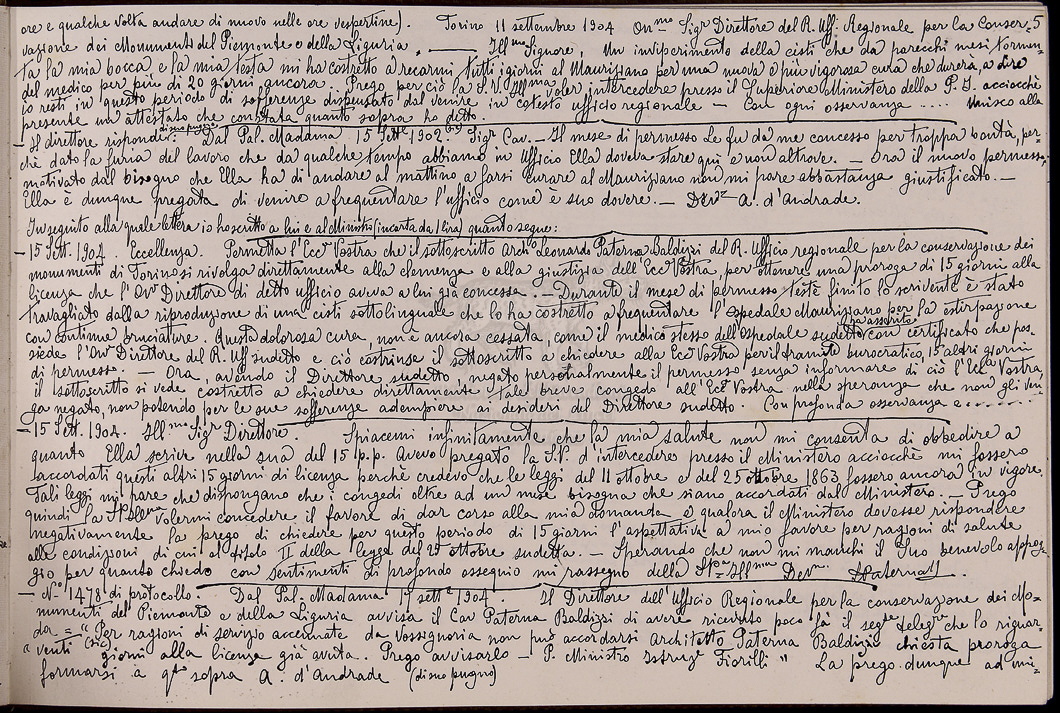 ore e qualche volta andare di nuovo nelle ore vespertine). Torino 11 settembre 1904 On.mo Sig.r Direttore del R. Uff. Regionale per la Conser= 5
vazione dei Monumenti del Piemonte e della Liguria. — Ill.mo Signore, Un inviperimento della cisti che da parecchi mesi tormen=
ta la mia bocca e la mia testa mi ha costretto a recarmi tutti i giorni al Mauriziano per una nuova e più vigorosa cura che durerà, a dire
del medico per più di 20 giorni ancora. Prego per ciò la S.V. Ill.ma voler intercedere presso il Superiore Ministero della P. I. acciocchè
io resti in questo periodo di sofferenze dispensato dal venire in cotesto ufficio regionale — Con ogni osservanza ..... Unisco alla
presente un attestato che constata quanto sopra ho detto.
— Il direttore risponde: Dal Pal. Madama 15 Sett.e 1902 (sic) Sig.r Cav. — Il mese di permesso Le fu da me concesso per troppa bontà, per=
chè dato la furia del lavoro che da qualche tempo abbiamo in Ufficio Ella doveva stare qui e non altrove. — Ora il nuovo permesso,
motivato dal bisogno che Ella ha di andare al mattino a farsi curare al Mauriziano non mi pare abbastanza giustificato. —
Ella è dunque pregata di venire a frequentare l'ufficio com'è suo dovere. — A. d'Andrade.
In seguito alla quale lettera io ho scritto a lui e al Ministro (in carta da 1 lira) quanto segue:
— 15 Sett. 1904. Eccellenza. Permetta l'Ecc.a Vostra che il sottoscritto Arch. Leonardo Paterna Baldizzi del R. Ufficio regionale per la conservazione dei
monumenti di Torino si rivolga direttamente alla clemenza e alla giustizia dell'Ecc.a Vostra, per ottenere una proroga di 15 giorni alla
licenza che l'On. Direttore di detto ufficio aveva a lui già concessa. — Durante il mese di permesso testè finito lo scrivente è stato
travagliato dalla riproduzione di una cisti sottolinguale che lo ha costretto a frequentare l'Ospedale Mauriziano per la estirpazione
con continue bruciature. Questa dolorosa cura, non è ancora cessata, come il medico stesso dell'Ospedale sudetto ha asserito con certificato che pos=
siede l'On. Direttore del R. Uff. sudetto e ciò costrinse il sottoscritto a chiedere alla Ecc.a Vostra per il tramite burocratico, 15 altri giorni
di permesso. — Ora, avendo il Direttore sudetto, negato personalmente il permesso senza informare di ciò l'Ecc.a Vostra,
il sottoscritto si vede costretto a chiedere direttamente tale breve congedo all'Ecc.a Vostra, nella speranza che non gli ven=
ga negato, non potendo per le sue sofferenze adempiere ai desideri del Direttore sudetto. Con profonda osservanza e ........
— 15 Sett. 1904. Ill.mo Sig.r Direttore. Spiacemi infinitamente che la mia salute non mi consenta di obbedire a
quanto Ella scrive nella sua del 15 p.p. Avevo pregato la S.V. d'intercedere presso il Ministero acciocchè mi fossero
accordati questi altri 15 giorni di licenza perchè credevo che le leggi del 11 ottobre e del 25 ottobre 1863 fossero ancora in vigore.
Tali leggi mi pare che dispongano che i congedi oltre ad un mese bisogna che siano accordati dal Ministero. — Prego
quindi la S.V. Ill.ma volermi concedere il favore di dar corso alla mia domanda e qualora il Ministero dovesse rispondere
negativamente la prego di chiedere per questo periodo di 15 giorni l'aspettativa a mio favore per ragioni di salute
alle condizioni, di cui al titolo II della legge del 25 ottobre sudetta. — Sperando che non mi manchi il Suo benevolo appog=
gio per quanto chiedo con sentimenti di profondo ossequio mi rassegno della S.V. Ill.ma Dev.mo LPaterna B.
— N.o 1478 di protocollo. Dal Pal. Madama sett.e 1904. Il Direttore dell'Ufficio Regionale per la conservazione dei Mo=
numenti del Piemonte e della Liguria avvisa il Cav. Paterna Baldizzi di avere ricevuto poco fa il seg.te teleg.ma che lo riguar=
da = "Per ragioni di servizio accennate da Vossignoria non può accordarsi Architetto Paterna Baldizzi chiesta proroga
"venti (sic) giorni alla licenza già avuta. Prego avvisarlo — P. Ministro Istruz.e Fiorilli" La prego dunque ad uni=
formarsi a q.to sopra A. d'Andrade (di suo pugno)